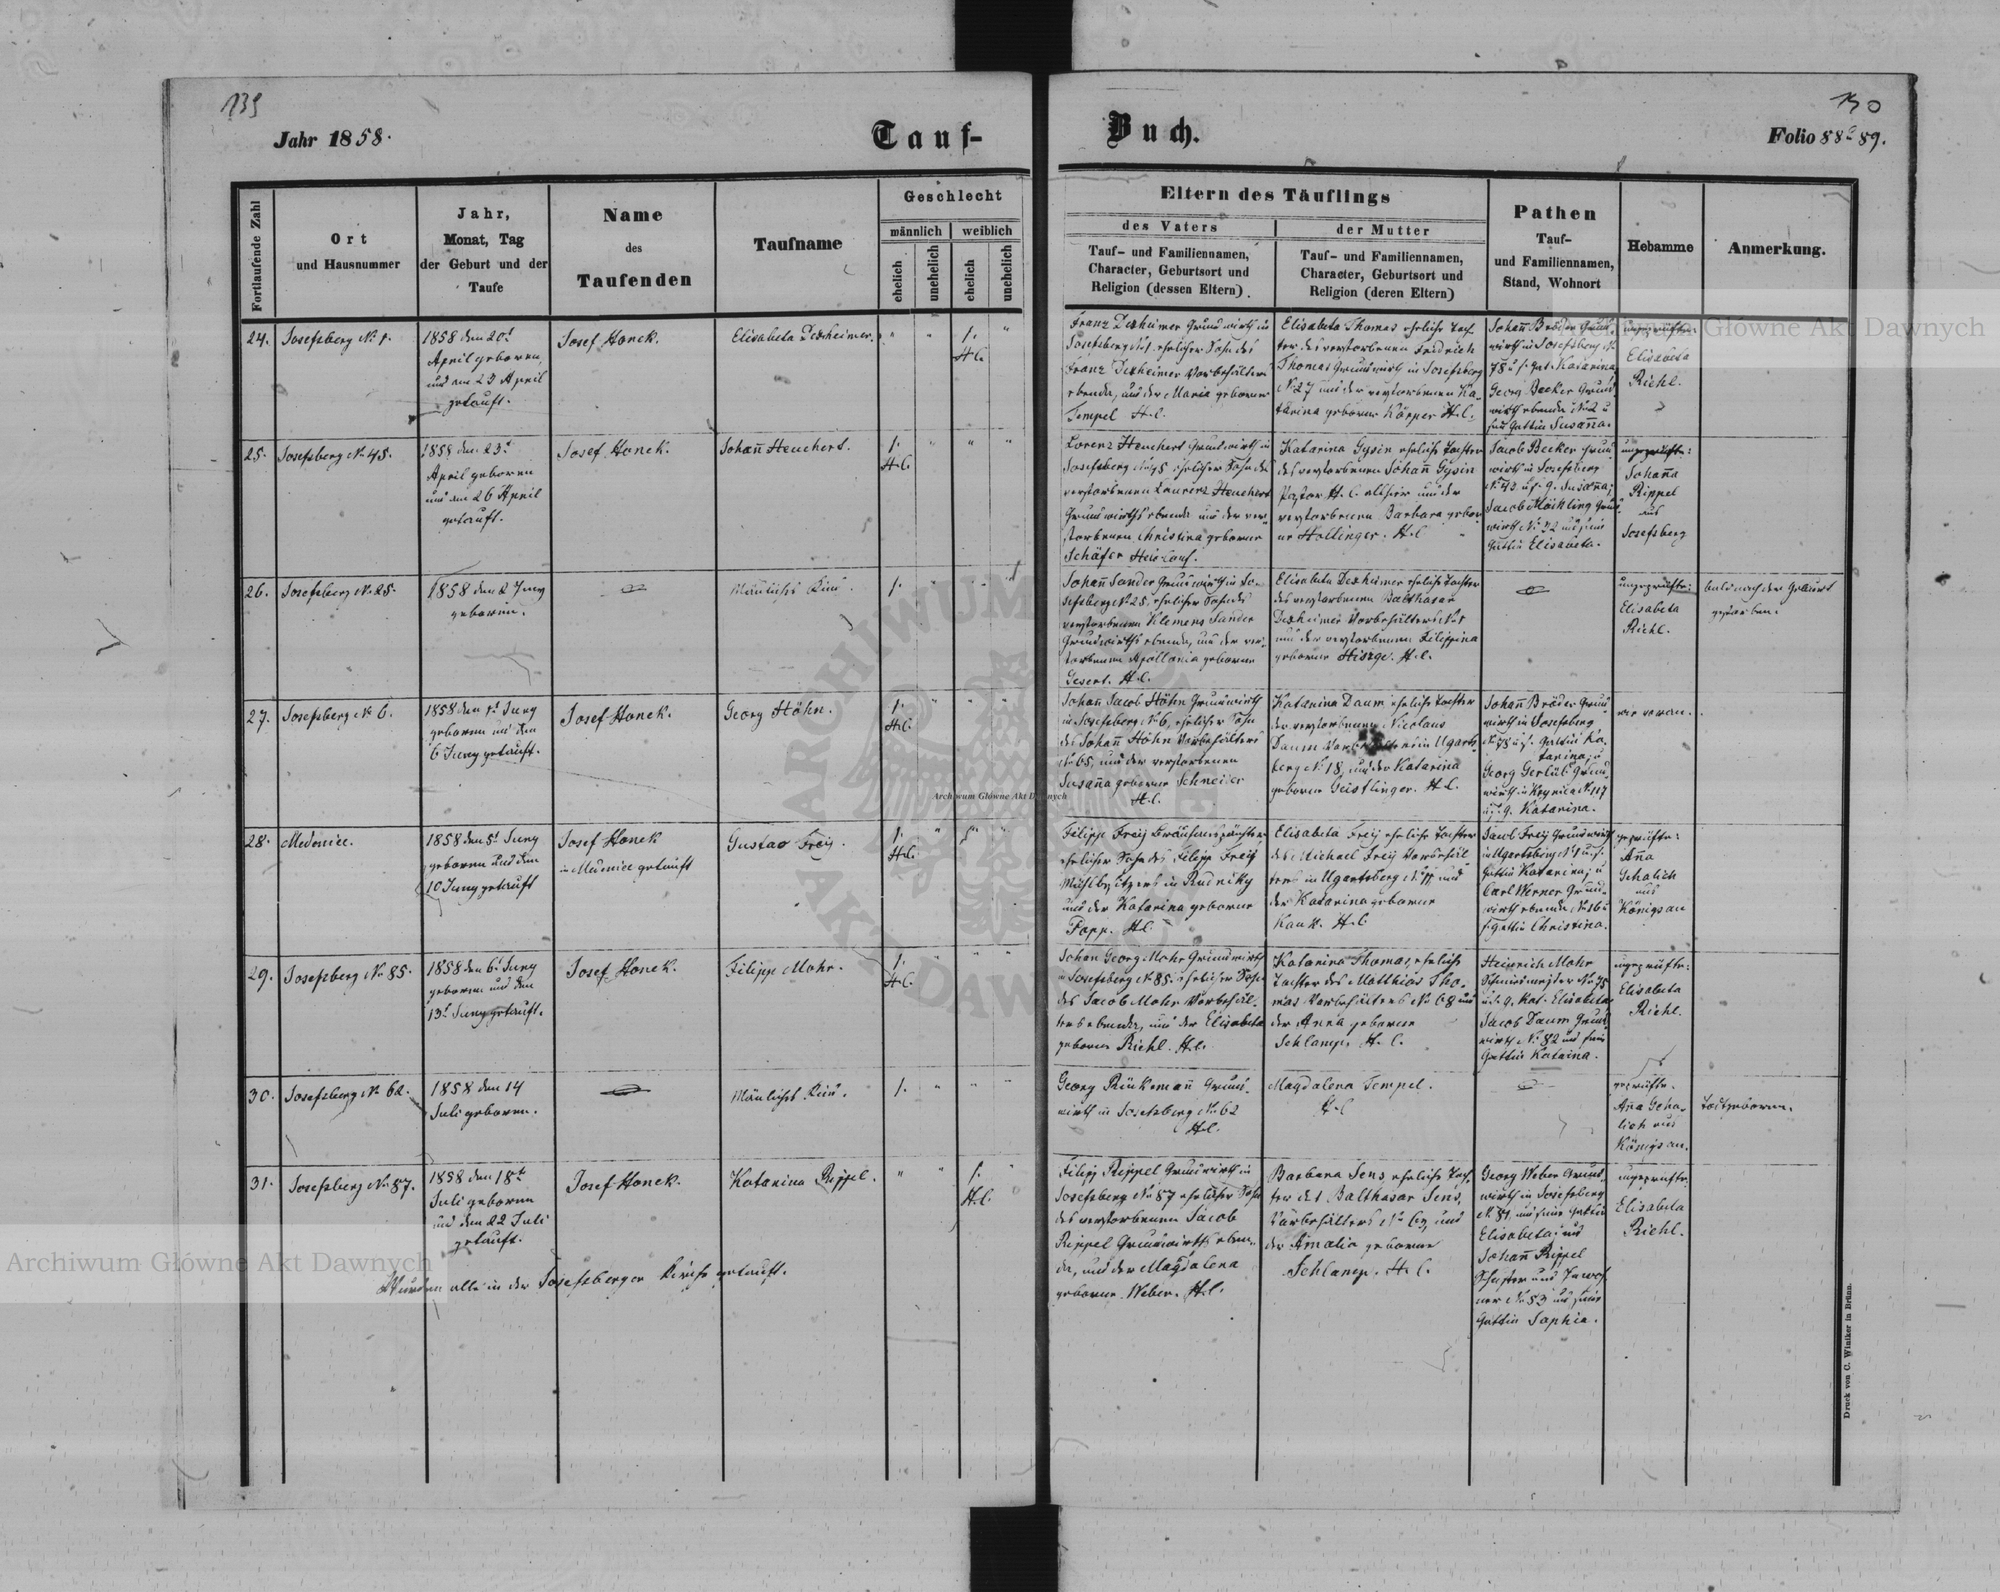 139
Jahr 1858.
Tauf-
Buch.
130
Folio 88 & 89.
Fortlaufende Zahl
Ort
und Hausnummer
Jahr,
Monat, Tag
der Geburt und der
Taufe
Name
des
Taufenden
Taufname
Geschlecht
männlich
weiblich
ehelich
unehelich
ehelich
unehelich
Eltern des Täuflings
des Vaters
Tauf- und Familiennamen,
Character, Geburtsort und
Religion (dessen Eltern).
der Mutter
Tauf- und Familiennamen,
Character, Geburtsort und
Religion (deren Eltern)
Pathen
Tauf-
und Familiennamen,
Stand, Wohnort
Hebamme
Anmerkung.
24.
Josefsberg No 1.
1858 den 20t
April geboren,
und am 23 April
getauft.
Josef Honek.
Elisabeta Dexheimer.
" " 1. "
H.C.
Franz Dexheimer Grundwirth in
Josefsberg No 1, ehelicher Sohn des
Franz Dexheimer Vorbehälters
ebenda, und der Maria geborne
Tempel H.C.
Elisabeta Thomas eheliche Toch-
ter des verstorbenen Fridrich
Thomas Grundwirth in Josefsberg
No 27 und der verstorbenen Ka-
tarina geborne Körper H.C.
Johañ Bröder Grund-
wirth in Josefsberg No
78 u s. Gat. Katarina,
Georg Becker Grund
wirth ebenda No 2 u
sei Gattin Susaña.
ungeprüfte
Elisabeta
Riehl.
25.
Josefsberg No 45.
1858 den 23t
April geboren
und den 26 April
getauft.
Josef Honek.
Johañ Heuchert.
1. " " "
H.C.
Lorenz Heuchert Grundwirth in
Josefsberg No 45 ehelicher Sohn des
verstorbenen Laurenz Heuchert
Grundwirths ebenda und der ver-
storbenen Christina geborne
Schäfer Helv. Conf.
Katarina Gysin eheliche Tochter
des verstorbenen Johañ Gysin
Pastor H.C. allhier und der
verstorbenen Barbara gebor-
ne Hollinger. H.C
Jacob Becker Grund
wirth in Josefsberg
No 43 u s. g. Susaña;
Jacob Möckling Grund
wirth No 32 und seine
Gattin Elisabeta.
ungeprüfte:
Johaña
Rippel
aus
Josefsberg
26.
Josefsberg No 25.
1858 den 2 Juny
geboren.
Mänliches Kind.
1. " " "
Johañ Sander Grundwirth in Jo-
sefsberg No 25, ehelicher Sohn des
verstorbenen Klemens Sander
Grundwirths ebenda, und der ver-
storbenen Apollonia geborne
Gesert. H.C.
Elisabeta Dexheimer eheliche Tochter
des verstorbenen Balthasar
Dexheimer Vorbehälters No 1
und der verstorbenen Filippina
geborne Hisge. H.C.
ungeprüfte:
Elisabeta
Riehl.
bald nach der Geburt
gestorben.
27.
Josefsberg No 6.
1858 den 1t Juny
geboren und den
6 Juny getauft.
Josef Honek.
Georg Höhn.
1. " " "
H.C.
Johañ Jacob Höhn Grundwirth
in Josefsberg No 6, ehelicher Sohn
des Johañ Höhn Vorbehälters
No 65, und der verstorbenen
Susaña geborne Schneider
H.C.
Katarina Daum eheliche Tochter
des verstorbenen Nicolaus
Daum in Ugarts-
berg No 18, und der Katarina
geborne Geistlinger. H.C.
Johañ Bröder Grund
wirth in Josefsberg
No 78 u s. Gattin Ka-
tarina; u
Georg Gerlib Grund
wirth in Krynica No 117
u s. g. Katarina.
wie voran.
28.
Medenice.
1858 den 5t Juny
geboren und den
10 Juny getauft
Josef Honek
in Medenice getauft
Gustav Freij.
1. " " "
H.C.
Filipp Freij Bräuhauspächter,
ehelicher Sohn des Filipp Freij
Mühlbesitzers in Rudniky
und der Katarina geborne
Popp. H.C.
Elisabeta Freij eheliche Tochter
des Michael Freij Vorbehäl-
ters in Ugartsberg No und
der Katarina geborne
Kauk. H.C
Jacob Freij Grundwirth
in Ugartsberg No 1 u. s.
Gattin Katarina; u
Carl Werner Grund-
wirth ebenda No 16 u
s. Gattin Christina.
geprüfte:
Aña
Schalich
aus
Königsau
29.
Josefsberg No 85.
1858 den 6t Juny
geboren und den
13t Juny getauft.
Josef Honek.
Filipp Mohr.
1. " " "
H.C.
Johan Georg Mohr Grundwirth
in Josefsberg No 85. ehelicher Sohn
des Jacob Mohr Vorbehäl-
ters ebenda, und der Elisabeta
geborne Riehl. H.C.
Katarina Thomas, eheliche
Tochter des Matthias Tho-
mas Vorbehälters No 68 und
der Anna geborne
Schlamp. H.C.
Heinrich Mohr
Schmiedmeister No 75
u s. g. Kat. Elisabeta
Jacob Daum Grund
wirth No 82 und seine
Gattin Kataina.
ungeprüfte:
Elisabeta
Riehl.
30.
Josefsberg No 62.
1858 den 14
Juli geboren.
Mänliches Kind.
1. " " "
Georg Rückemañ Grund-
wirth in Josefsberg No 62
H.C.
Magdalena Tempel.
H.C
geprüfte.
Aña Scha-
lich aus
Königsau.
Todtgeboren.
31.
Josefsberg No 87.
1858 den 18t
Juli geboren
und den 22 Juli
getauft.
Josef Honek.
Katarina Rippel.
" " 1. "
H.C
Filipp Rippel Grundwirth in
Josefsberg No 87 ehelicher Sohn
des verstorbenen Jacob
Rippel Grundwirths eben-
da, und der Magdalena
geborne Weber. H.C.
Barbara Sens, eheliche Toch-
ter des Balthasar Sens,
Vorbehälters No 67, und
der Amalia geborne
Schlamp. H.C.
Georg Weber Grund-
wirth in Josefsberg
No 81, und seine Gattin
Elisabeta; und
Johañ Rippel
Schuster und Inwoh-
ner No 53 und seine
Gattin Sophia.
ungeprüfte.
Elisabeta
Riehl.
Wurden alle in der Josefsberger Kirche getauft.
Druck von C. Winiker in Brünn.
Archiwum Główne Akt Dawnych
Główne Akt Dawnych
Archiwum Główne Akt Dawnych